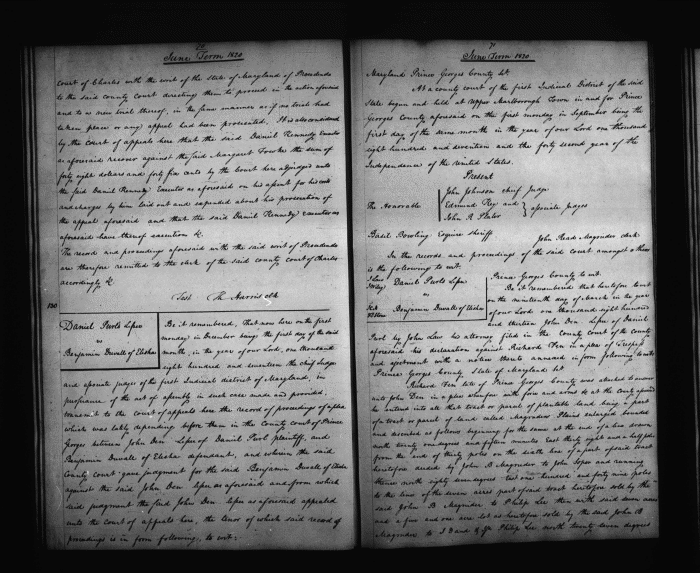 June Term 1820
Court of Charles with the writ of the State of Maryland of Procedendo
to the said county court directing them to proceed in the action aforesaid
and to a new trial thereof, in the same manner as if no trial had
taken place or any appeal had been prosecuted. It is also considered
by the court of appeals here that the said Daniel Kennedy Executor
as aforesaid recover against the said Margaret the sum of
forty eight dollars and forty five cents by the court here adjudged unto
the said Daniel Kennedy Executor as aforesaid on his assent for his costs
and charges by him laid out and expended about his prosecution of
the appeal aforesaid and that the said Daniel Kennedy executor as
aforesaid have thereof execution &c.
The record and proceedings aforesaid with the said writ of Procedendo
are therefore remitted to the clerk of the said county court of Charles
accordingly &c
Test Th Harris clk
130
Daniel Perols Lessee
vs
Benjamin Duvall of Elisha
Be it remembered, that now here on the first
monday in December being the first day of the said
month, in the year of our Lord, one thousand
eight hundred and seventeen the chief Judge
and associate judges of the first Judicial district of Maryland, in
pursuance of the act of assembly in such case made and provided,
transmit to the court of appeals here the record of proceedings of a plea
which was lately depending before them in the County court of Prince
Georges between John Den Lessee of Daniel Perol plaintiff, and
Benjamin Duvall of Elisha defendant, and wherein the said
County court gave judgment for the said Benjamin Duvall of Elisha
against the said John Den lessee as aforesaid and from which
said judgment the said John Den lessee as aforesaid appealed
unto the court of appeals here, the tenor of which said record of
proceedings is in form following, to wit:
71
June Term 1820
Maryland Prince Georges County Sct.
At a county court of the first Judicial District of the said
State begun and held at Upper Marlborough Town in and for Prince
Georges County aforesaid on the first monday in September being the
first day of the same month in the year of our Lord one thousand
eight hundred and seventeen and the forty second year of the
Independence of the United States.
Present
The Honorable
John Johnson chief Judge
Edmund Key and
John R Plater
associate judges
Basil Bowling Esquire sheriff
John Read Magruder clerk
In the records and proceedings of the said court amongst others
is the following to wit.
Daniel Perols Lessee
vs
Benjamin Duvall of Elisha
Prince Georges County to wit.
Be it remembered that heretofore to wit
on the nineteenth day of March in the year
of our Lord one thousand eight hundred
and thirteen John Den Lessee of Daniel
Perol by John Law his attorney filed in the county court of the county
aforesaid his declaration against Richard Fen in a plea of Trespass
and ejectment with a notice thereto annexed in form following to wit
Prince Georges County State of Maryland Sct.
Richard Fen late of Prince Georges County was attached to answer
unto John Den in a plea wherefore with force and arms &c at the County aforesaid
he entered into all that tract or parcel of plantable land being a part
of a tract or parcel of land called Magruders Plains enlarged bounded
and described as follows beginning for the same at the end of a line drawn
north twenty one degrees and fifteen minutes East thirty eight and a half poles
from the end of thirty poles on the sixth line of a part of said tract
heretofore deeded by John B Magruder to John and running
thence north eighty seven degrees East one hundred and forty nine poles
to the lines of the seven acres part of said tract heretofore sold by the
said John B Magruder to Philip Lee then with said seven acres
and a five and one acre lot as heretofore sold by the said John B
Magruder to Philip Lee north twenty seven degrees